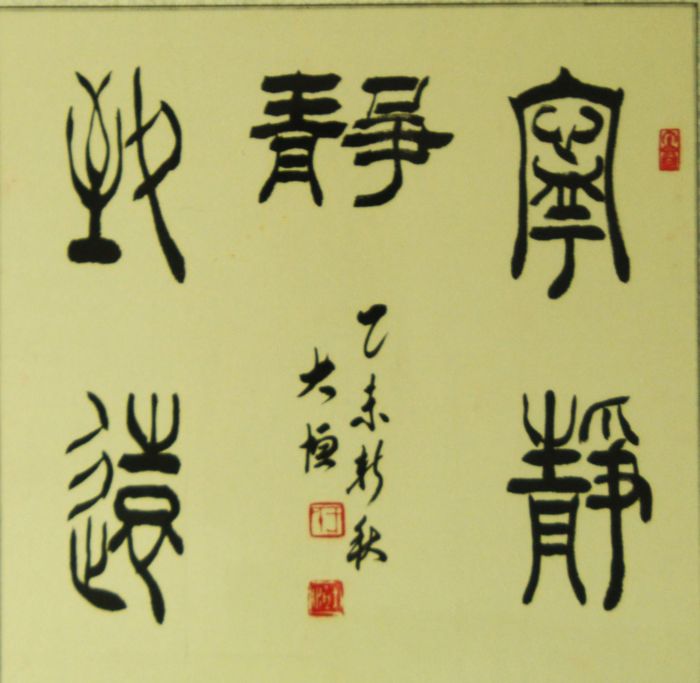 寧靜
靜
乙未新秋
大
致遠